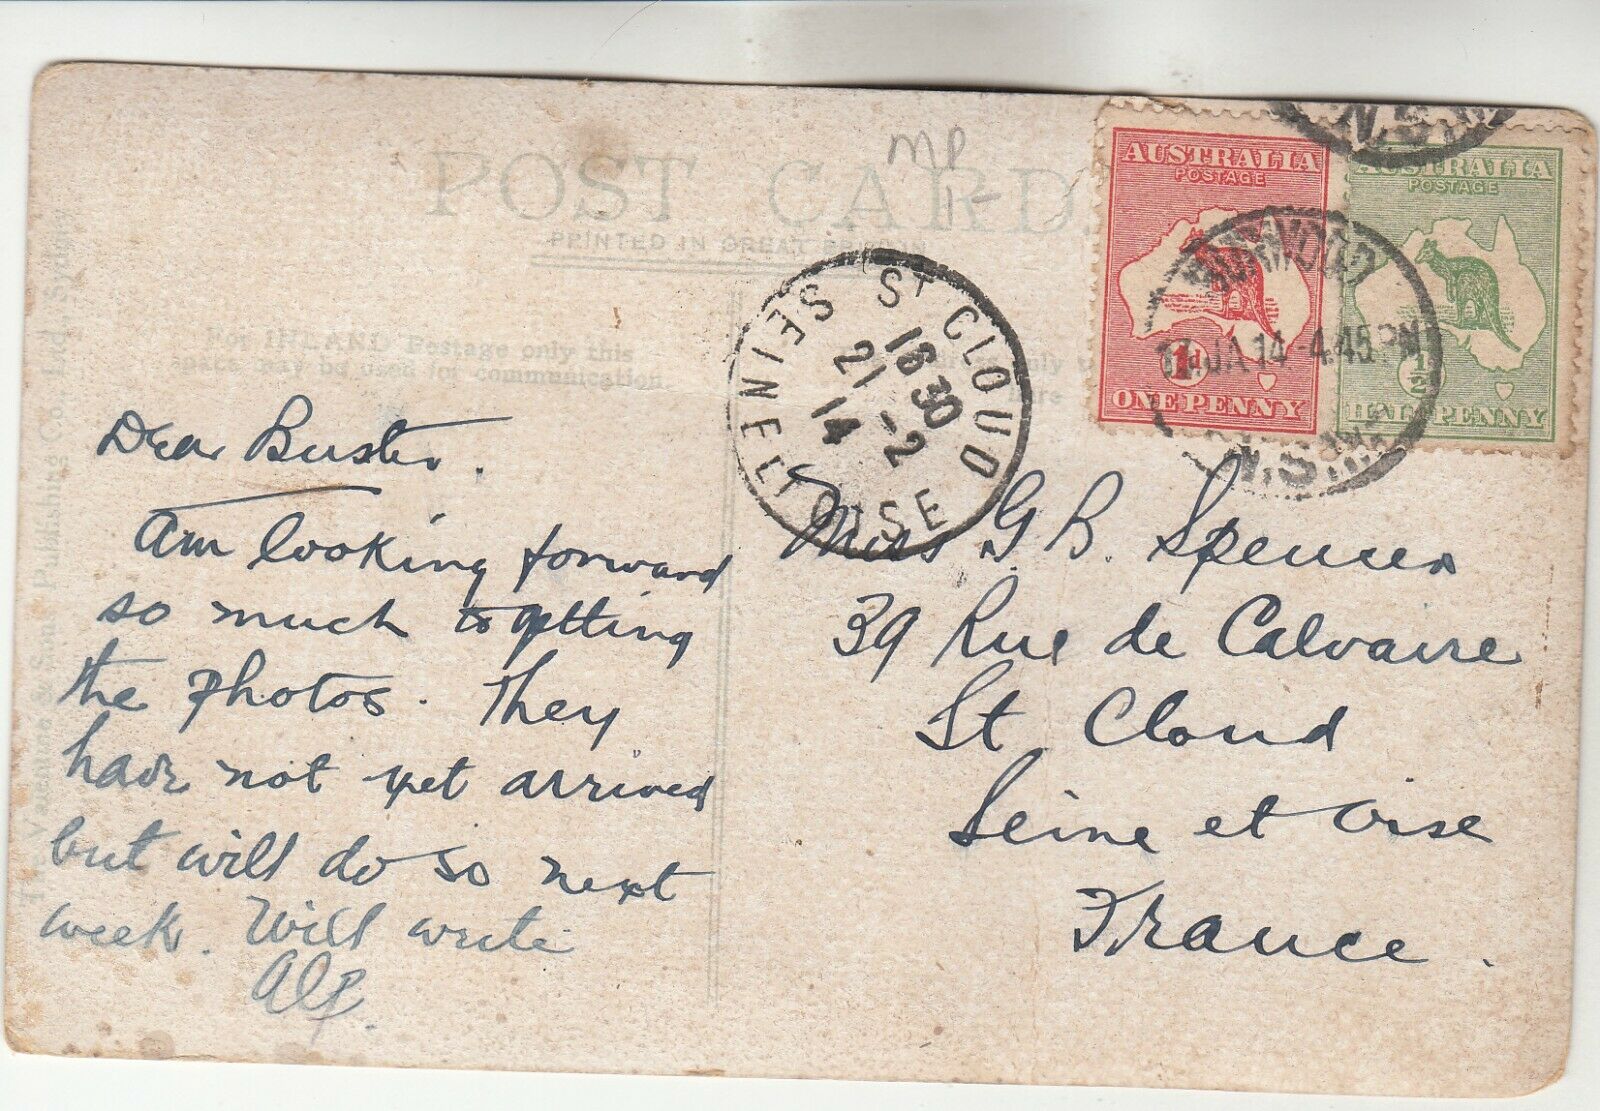 POST CARD
PRINTED IN GREAT BRITAIN
MP
1-
For INLAND Postage only this
space may be used for communication
only
here
Publishing Co., Ltd., Sydney
Dear Buster.
Am looking forward
so much to getting
the photos. They
have not yet arrived
but will do so next
week. Will write
Alf.
AUSTRALIA
POSTAGE
1d
ONE PENNY
AUSTRALIA
POSTAGE
1/2
HALF PENNY
N.S.W
JA 14 4.45 PM
N.S.W.
ST CLOUD
16 30
21 - 2
14
SEINE ET OISE
Miss G. B. Spencer
39 Rue de Calvaire
St. Cloud
Seine et Oise
France.